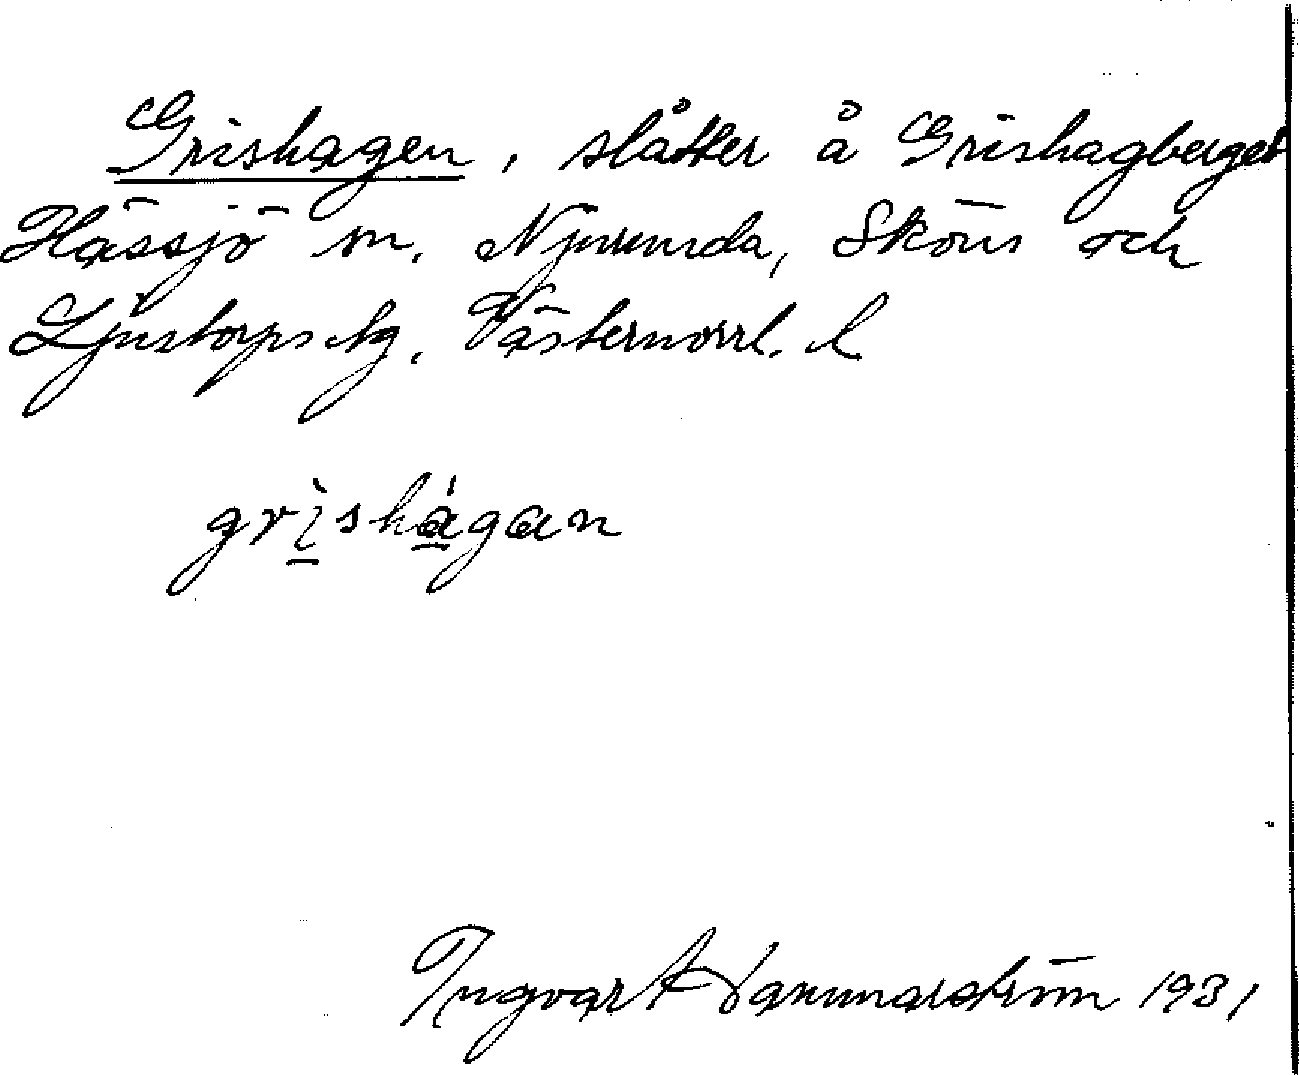 Grishagen, slåtter å Grishagberget
Hässjö sn, Njurunda, Sköns och
Ljustorps tg, Västernorrl. l
grìshágan
Ingvar 1931